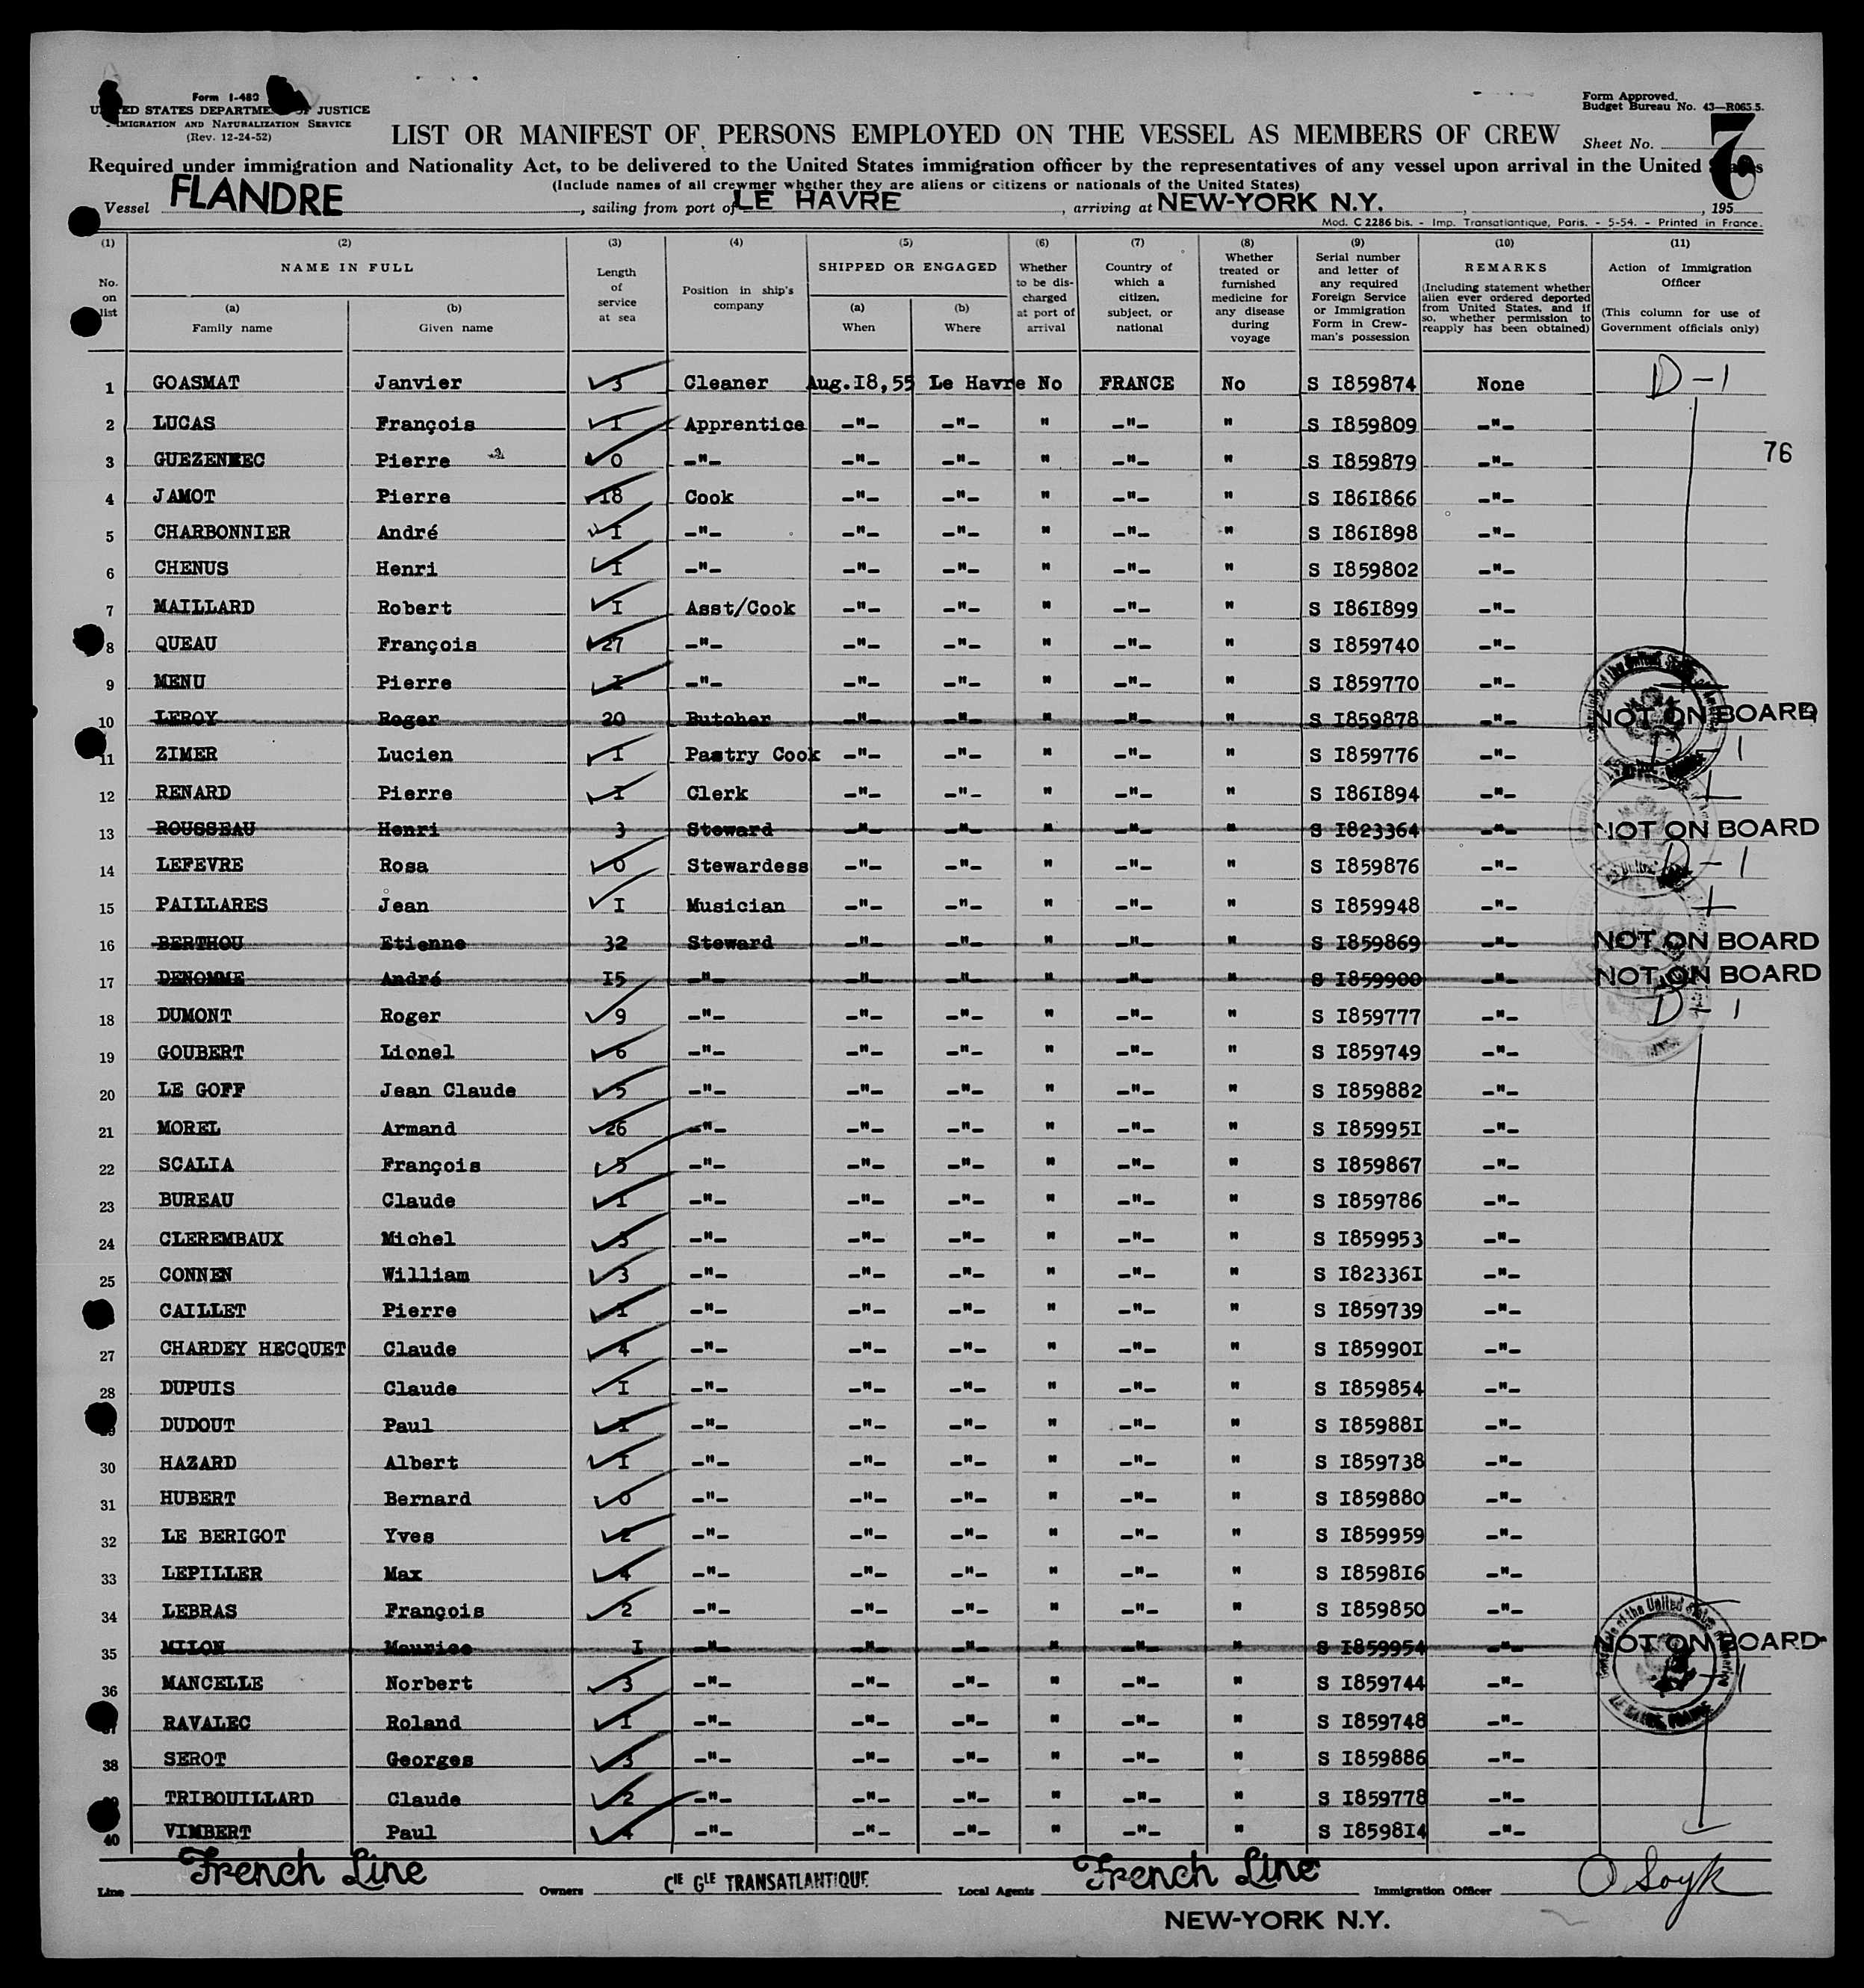 Form I-480
UNITED STATES DEPARTMENT OF JUSTICE
IMMIGRATION AND NATURALIZATION SERVICE
(Rev. 12-24-52)
Form Approved.
Budget Bureau No. 43—R065.5.
LIST OR MANIFEST OF PERSONS EMPLOYED ON THE VESSEL AS MEMBERS OF CREW
Sheet No. 7
Required under immigration and Nationality Act, to be delivered to the United States immigration officer by the representatives of any vessel upon arrival in the United States
(Include names of all crewmer whether they are aliens or citizens or nationals of the United States)
Vessel FLANDRE, sailing from port of LE HAVRE, arriving at NEW-YORK N.Y., 195
Mod. C 2286 bis. - Imp. Transatlantique, Paris. - 5-54. - Printed in France.
(1) (2) (3) (4) (5) (6) (7) (8) (9) (10) (11)
No. on list
NAME IN FULL
(a) Family name
(b) Given name
Length of service at sea
Position in ship's company
SHIPPED OR ENGAGED
(a) When
(b) Where
Whether to be discharged at port of arrival
Country of which a citizen, subject, or national
Whether treated or furnished medicine for any disease during voyage
Serial number and letter of any required Foreign Service or Immigration Form in Crewman's possession
REMARKS
(Including statement whether alien ever ordered deported from United States, and if so, whether permission to reapply has been obtained)
Action of Immigration Officer
(This column for use of Government officials only)
1 GOASMAT Janvier 3 Cleaner Aug.I8,55 Le Havre No FRANCE No S I859874 None D-1
2 LUCAS François I Apprentice -"- -"- " -"- " S I859809 -"-
3 GUEZENNEC Pierre 0 -"- -"- -"- " -"- " S I859879 -"-
76
4 JAMOT Pierre I8 Cook -"- -"- " -"- " S I86I866 -"-
5 CHARBONNIER André I -"- -"- -"- " -"- " S I86I898 -"-
6 CHENUS Henri I -"- -"- -"- " -"- " S I859802 -"-
7 MAILLARD Robert I Asst/Cook -"- -"- " -"- " S I86I899 -"-
8 QUEAU François 27 -"- -"- -"- " -"- " S I859740 -"-
9 MENU Pierre I -"- -"- -"- " -"- " S I859770 -"-
10 LEROY Roger 20 Butcher -"- -"- " -"- " S I859878 -"- NOT ON BOARD
11 ZIMER Lucien I Pastry Cook -"- -"- " -"- " S I859776 -"- D-1
12 RENARD Pierre I Clerk -"- -"- " -"- " S I86I894 -"-
13 ROUSSEAU Henri 3 Steward -"- -"- " -"- " S I823364 -"- NOT ON BOARD
14 LEFEVRE Rosa 0 Stewardess -"- -"- " -"- " S I859876 -"- D-1
15 PAILLARES Jean I Musician -"- -"- " -"- " S I859948 -"-
16 BERTHOU Etienne 32 Steward -"- -"- " -"- " S I859869 -"- NOT ON BOARD
17 DENOMME André I5 -"- -"- -"- " -"- " S I859900 -"- NOT ON BOARD
18 DUMONT Roger 9 -"- -"- -"- " -"- " S I859777 -"- D-1
19 GOUBERT Lionel 6 -"- -"- -"- " -"- " S I859749 -"-
20 LE GOFF Jean Claude 5 -"- -"- -"- " -"- " S I859882 -"-
21 MOREL Armand 26 -"- -"- -"- " -"- " S I85995I -"-
22 SCALIA François 5 -"- -"- -"- " -"- " S I859867 -"-
23 BUREAU Claude I -"- -"- -"- " -"- " S I859786 -"-
24 CLEREMBAUX Michel 3 -"- -"- -"- " -"- " S I859953 -"-
25 CONNEN William 3 -"- -"- -"- " -"- " S I82336I -"-
CAILLET Pierre I -"- -"- -"- " -"- " S I859739 -"-
27 CHARDEY HECQUET Claude 4 -"- -"- -"- " -"- " S I85990I -"-
28 DUPUIS Claude I -"- -"- -"- " -"- " S I859854 -"-
DUDOUT Paul I -"- -"- -"- " -"- " S I85988I -"-
30 HAZARD Albert I -"- -"- -"- " -"- " S I859738 -"-
31 HUBERT Bernard 0 -"- -"- -"- " -"- " S I859880 -"-
32 LE BERIGOT Yves 2 -"- -"- -"- " -"- " S I859959 -"-
33 LEPILLER Max 4 -"- -"- -"- " -"- " S I8598I6 -"-
34 LEBRAS François 2 -"- -"- -"- " -"- " S I859850 -"-
35 MILON Maurice I -"- -"- -"- " -"- " S I859954 -"- NOT ON BOARD
36 MANCELLE Norbert 3 -"- -"- -"- " -"- " S I859744 -"-
RAVALEC Roland I -"- -"- -"- " -"- " S I859748 -"-
38 SEROT Georges 3 -"- -"- -"- " -"- " S I859886 -"-
TRIBOUILLARD Claude 2 -"- -"- -"- " -"- " S I859778 -"-
40 VIMBERT Paul 4 -"- -"- -"- " -"- " S I8598I4 -"-
Line French Line Owners CIE GLE TRANSATLANTIQUE Local Agents French Line Immigration Officer O Soyk
NEW-YORK N.Y.